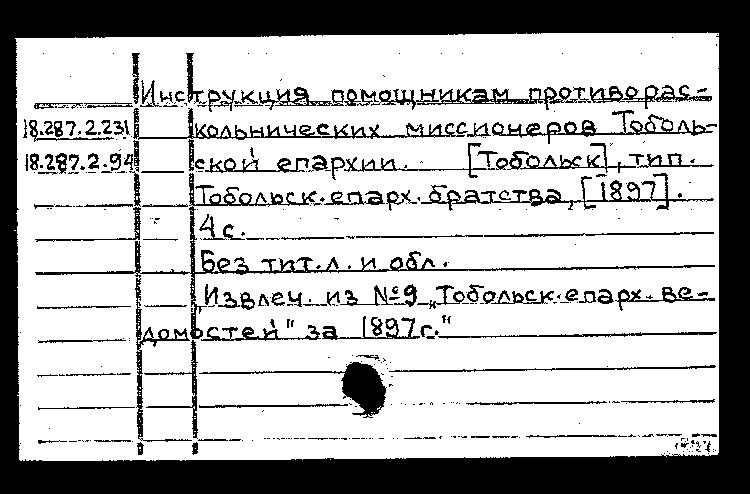 Инструкция помощникам противорас-
18.287.2.231 кольнических миссионеров Тоболь-
18.287.2.94 ской епархии. [Тобольск], тип.
Тобольск.епарх.братства, [1897].
4 с.
Без тит.л. и обл.
"Извлеч. из №9 „Тобольск.епарх.ве-
домостей" за 1897г."